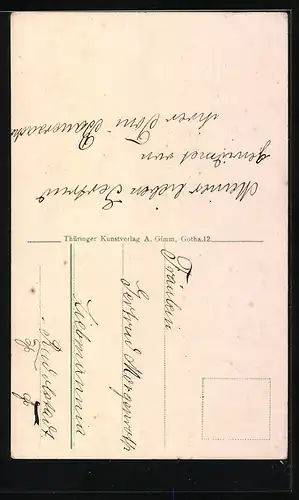 Meiner lieben Gertrud
gewidmet von
ihrer Toni
Thüringer Kunstverlag A. Gimm, Gotha.12
Fräulein
Gertrud Morgenroth
Rudolstadt